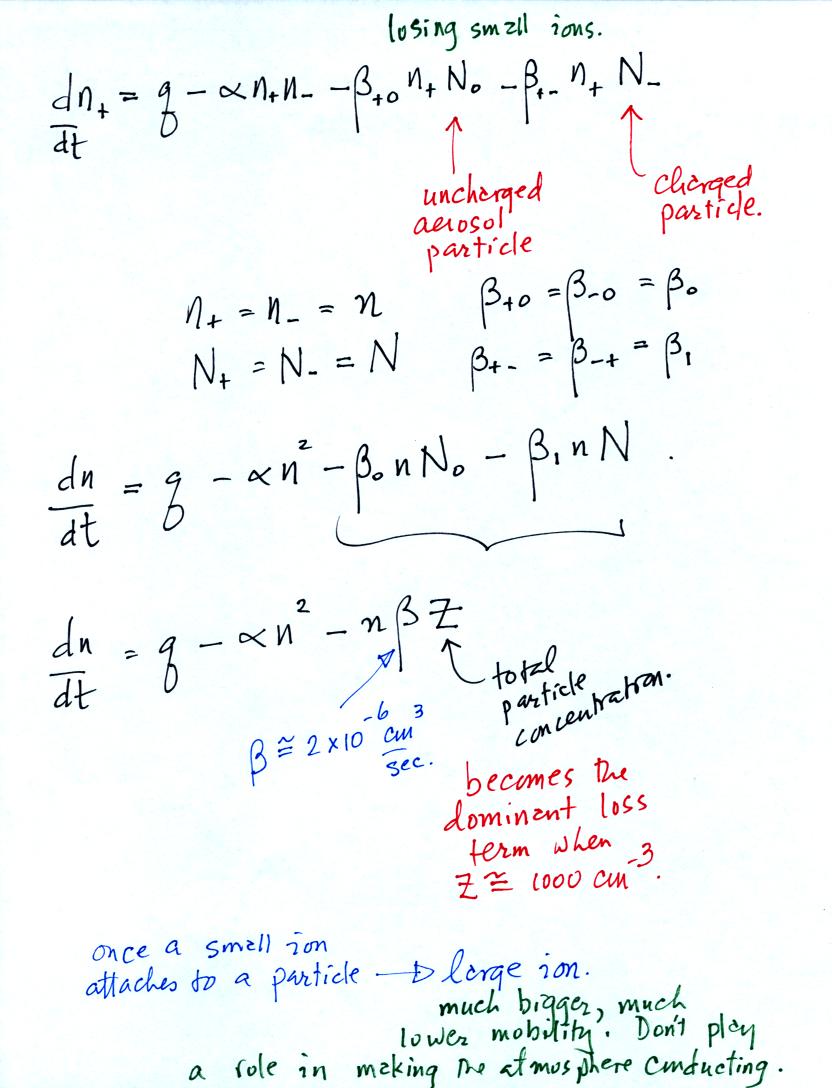 losing small ions.
dn₊/dt = q - αn₊n₋ - β₊₀ n₊ N₀ - β₊₋ n₊ N₋
uncharged
aerosol
particle
charged
particle.
n₊ = n₋ = n
β₊₀ = β₋₀ = β₀
N₊ = N₋ = N
β₊₋ = β₋₊ = β₁
dn/dt = q - αn² - β₀ n N₀ - β₁ n N .
dn/dt = q - αn² - n β Z
total
particle
concentration.
β ≅ 2 x 10⁻⁶ cm³/sec.
becomes the
dominant loss
term when
Z ≅ 1000 cm⁻³.
once a small ion
attaches to a particle → large ion.
much bigger, much
lower mobility. Don't play
a role in making the atmosphere conducting.